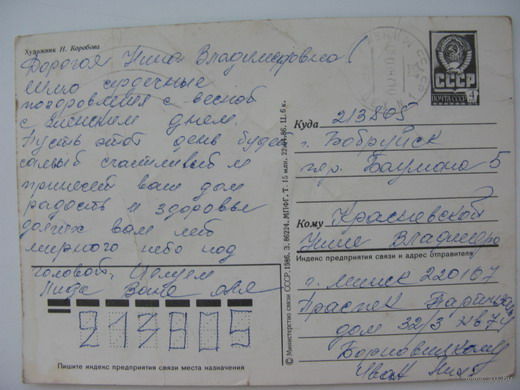 Художник Н. Коробова
Дорогая Нина Владимировна!
Шлю сердечные
поздравления с весной
с женским днем.
Пусть этот день будет
самый счастливый и
принесет ваш дом
радость и здоровье
долгих вам лет
мирного неба над
головой. Целуем
Лида Ваня Оля
СССР
ПОЧТА СССР
Куда 213805
г. Бобруйск
пер. Баумана 5
Кому Красневской
Нине Владимиро
Индекс предприятия связи и адрес отправителя
г. Минск 220107
дом 32/3 кв 74
Иван
© Министерство связи СССР, 1986. З. 86224. МПФГ, Т. 15 млн. 22.04.86. Ц. 6 к.
213805
Пишите индекс предприятия связи места назначения